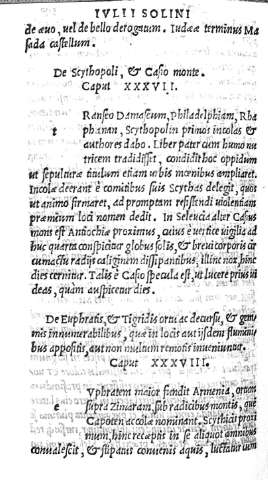 IVLII SOLINI
de æuo, uel de bello detogatum. Iudææ terminus Ma
sada castellum.
De Scythopoli, & Casio monte.
Caput XXXVII.
t Ranseo Damascum, Philadelphiam, Rha
phanan, Scythopolin primos incolas &
authores dabo. Liber pater cum humo nu
tricem tradidisset, condidit hoc oppidum
ut sepulturæ titulum etiam urbis mœnibus ampliaret.
Incolæ deerant è comitibus suis Scythas delegit, quos
ut animo firmaret, ad promptam resistendi uiolentiam
præmium loci nomen dedit. In Seleucia alter Casius
mons est Antiochiæ proximus, cuius è uertice uigilia ad
huc quarta conspicitur globus solis, & breui corporis cir
cumactu radijs caliginem dissipantibus, illinc nox, hinc
dies cernitur. Talis è Casio specula est, ut lucere prius ui
deas, quàm auspicetur dies.
De Euphratis, & Tigridis ortu ac decursu, & gem
mis innumerabilibus, quæ in locis aut ijsdem flumini
bus appositis, aut non multum remotis inueniuntur.
Caput XXXVIII.
e Vphratem maior fundit Armenia, ortum
supra Zimaram, sub radicibus montis, quē
Capoten accolæ nominant. Scythicis proxi
mum, hinc receptis in se aliquot amnibus
conualescit, & stipatus conuenis aquis, luctatur cum